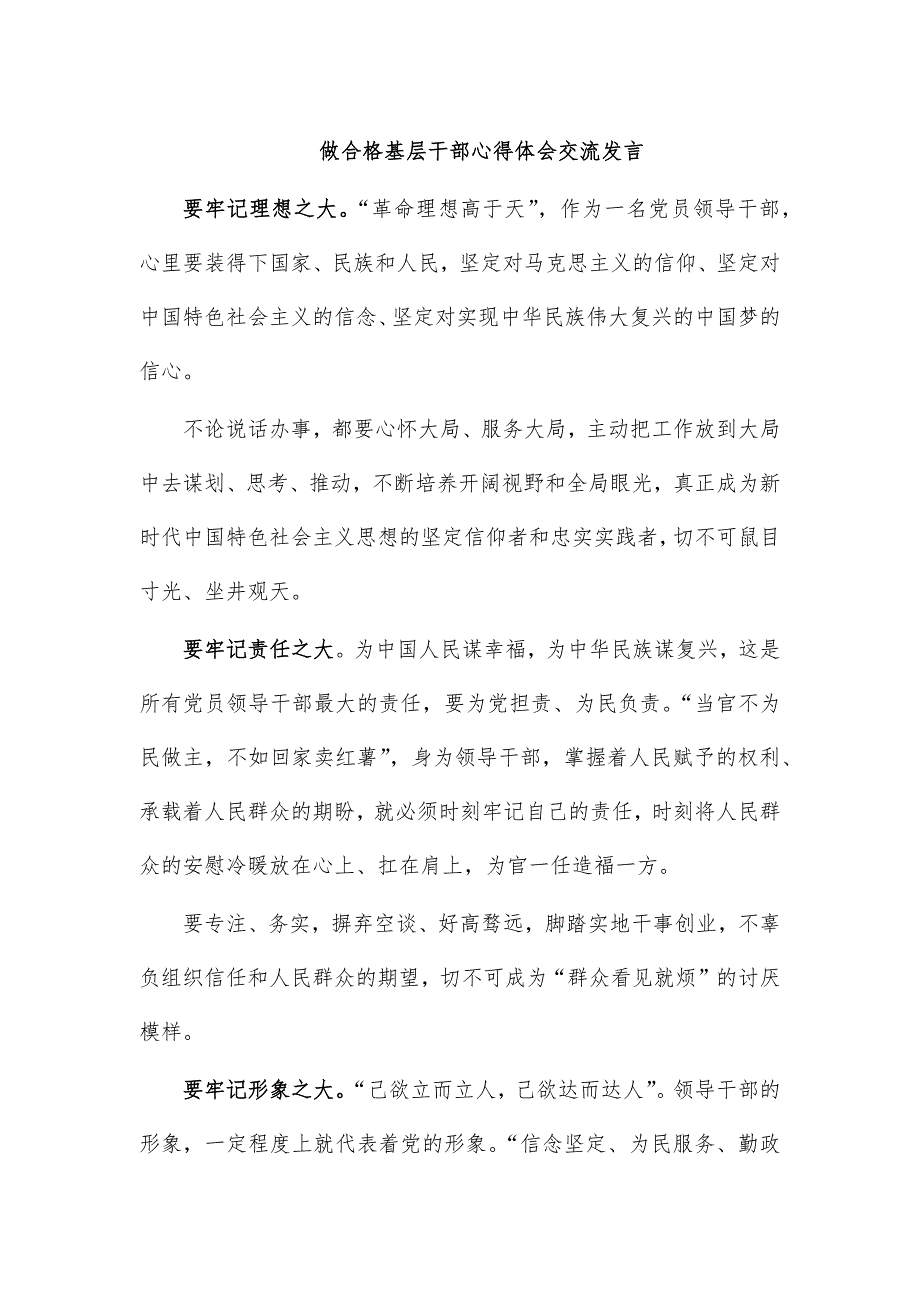 做合格基层干部心得体会交流发言
要牢记理想之大。“革命理想高于天”，作为一名党员领导干部，
心里要装得下国家、民族和人民，坚定对马克思主义的信仰、坚定对
中国特色社会主义的信念、坚定对实现中华民族伟大复兴的中国梦的
信心。
不论说话办事，都要心怀大局、服务大局，主动把工作放到大局
中去谋划、思考、推动，不断培养开阔视野和全局眼光，真正成为新
时代中国特色社会主义思想的坚定信仰者和忠实实践者，切不可鼠目
寸光、坐井观天。
要牢记责任之大。为中国人民谋幸福，为中华民族谋复兴，这是
所有党员领导干部最大的责任，要为党担责、为民负责。“当官不为
民做主，不如回家卖红薯”，身为领导干部，掌握着人民赋予的权利、
承载着人民群众的期盼，就必须时刻牢记自己的责任，时刻将人民群
众的安慰冷暖放在心上、扛在肩上，为官一任造福一方。
要专注、务实，摒弃空谈、好高骛远，脚踏实地干事创业，不辜
负组织信任和人民群众的期望，切不可成为“群众看见就烦”的讨厌
模样。
要牢记形象之大。“己欲立而立人，己欲达而达人”。领导干部的
形象，一定程度上就代表着党的形象。“信念坚定、为民服务、勤政